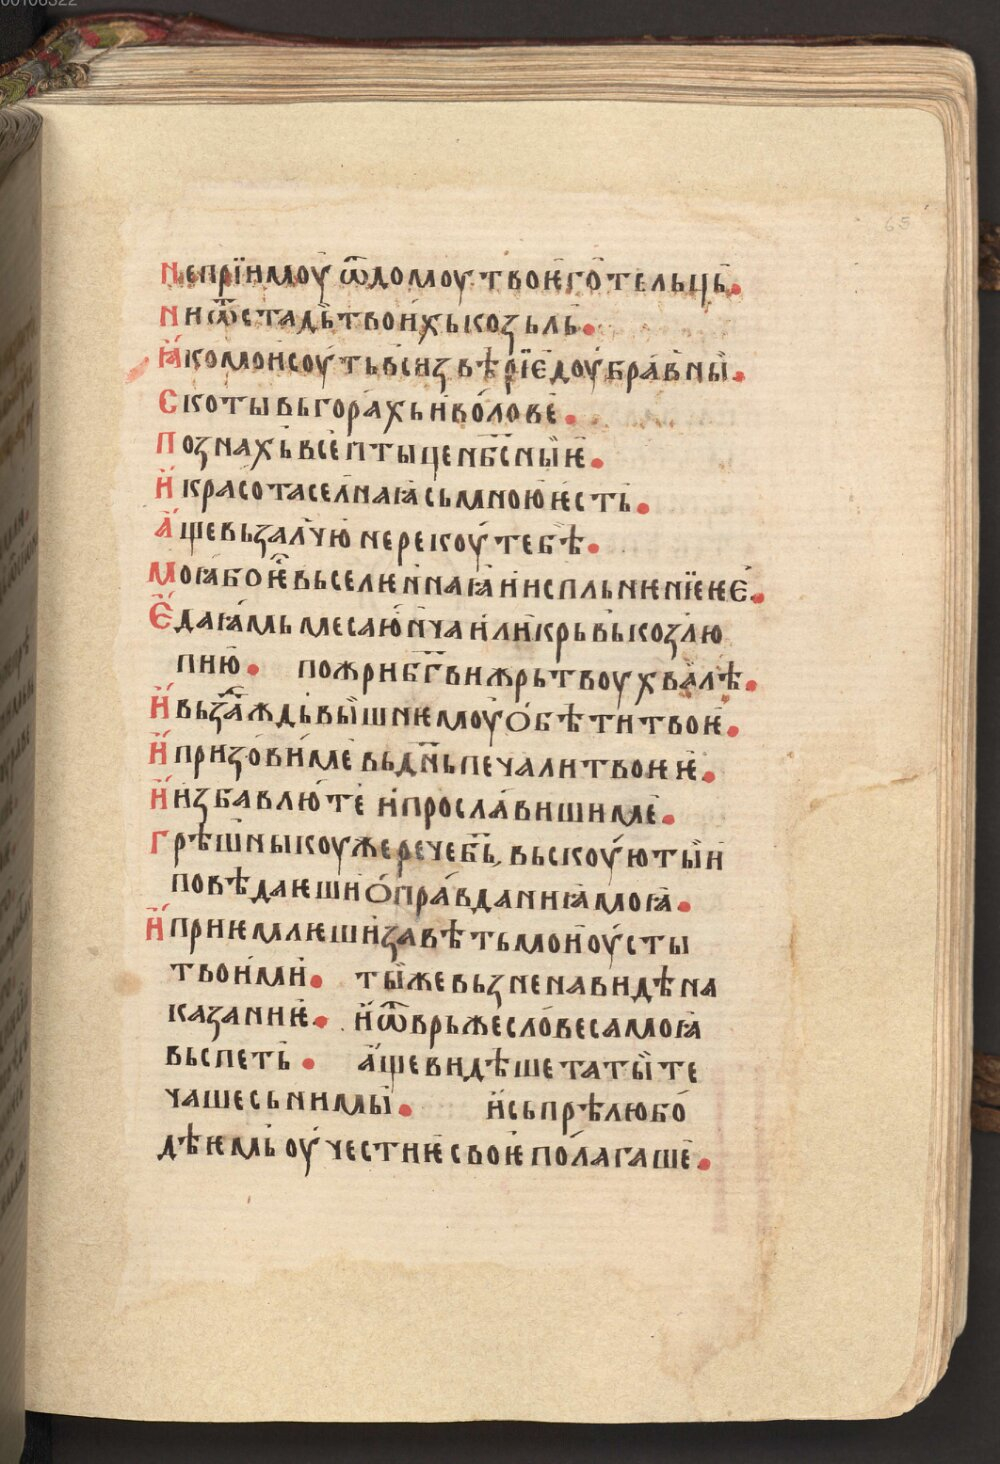 00106322
65
Не прїимоу ѿ домоу твоѥго тельць.
Ни ѿ стадь твоихь козьль.
Ꙗко мои соуть вьси звѣрїе доубравны.
Скоты вь горахь и волове.
Познахь все птыце нбⷭ҇ныѥ.
И красота селнаꙗ сь мною ѥсть.
Аще вьзалчю не рекоу тебѣ.
Моꙗ бо ѥ вьселѥннаꙗ и испльнѥнїе ѥе.
Еда ꙗмь меса юнча или крьвь козлю
пию. пожри бг҃ви жрьтвоу хвалѣ.
И вьзⷣаждь вышнѥмоу обѣти твоѥ.
И призови ме вь днь҃ печали твоѥѥ.
И избавлю те и прославиши ме.
Грѣшныкоу же рече бь҃, вьскоую ты и
повѣдаѥши оправданиꙗ моꙗ.
И приѥмлѥши завѣть мои оусты
твоими. ты же вьзненавидѣ на
казаниѥ. и ѿврьже словеса моꙗ
вьспеть. аще видѣше таты те
чаше сь нимы. и сь прѣлюбо
дѣѥмь оучестиѥ своѥ полагаше.